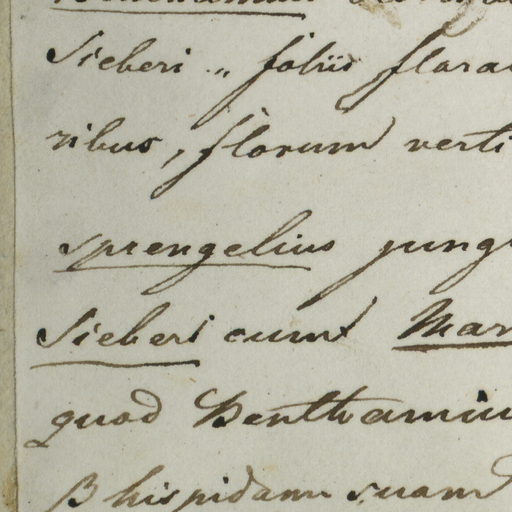 Sieberi „ foliis flora
ribus, florum verti
Sprengelius jung
Sieberi cum Mar
quod Benthamiu
β hispidam suam